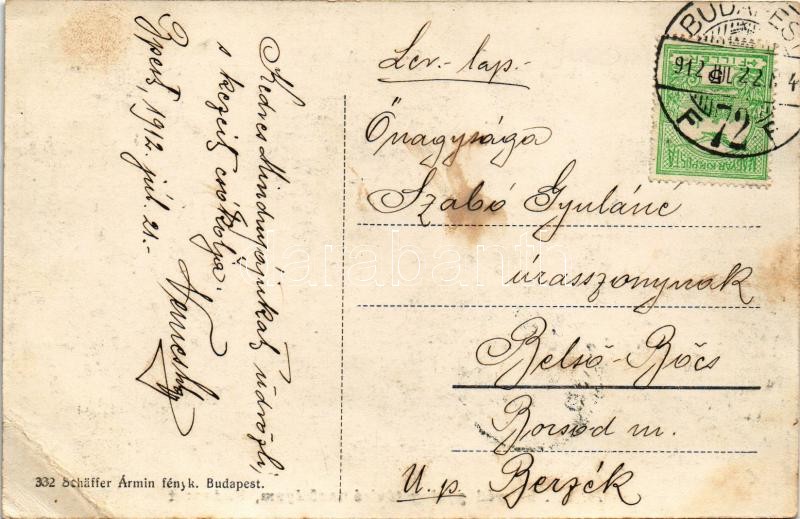 Lev.-lap.-
Őnagysága
Szabó Gyuláné
úrasszonynak
Belső-Bőcs
Borsod m.
U. p. Berzék
Kedves Mindnyájukat üdvözli,
s kezeit csókolja.
Bpest, 1912. júl. 21.-
332 Schäffer Ármin fényk. Budapest.
BUDAPEST
912 JUL 22
72
MAGYAR KIR. POSTA
darabanth